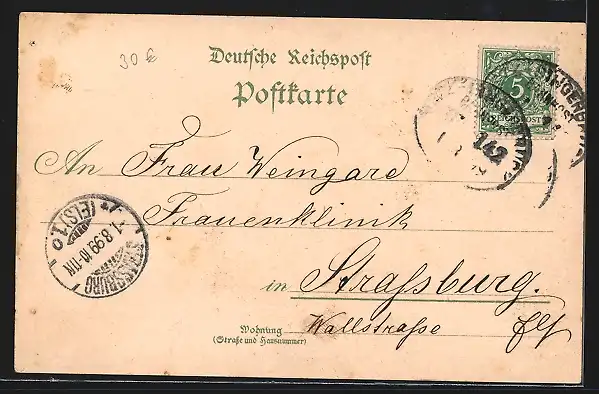 30 €
Deutsche Reichspost
Postkarte
5
REICHSPOST
142
An Frau Weingard
Frauenklinik
in Straßburg.
Wallstraße Els
Wohnung
(Straße und Hausnummer)
STRASSBURG
1.8.99.10-11N
(ELS) 1 o